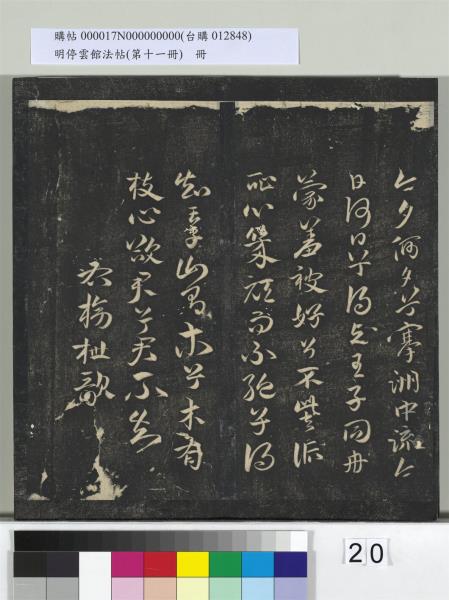 購帖 000017N000000000(台購 012848)
明停雲館法帖(第十一冊) 冊
今夕何夕兮搴洲中流今
日何日兮得與王子同舟
蒙羞被好兮不訾詬
恥心幾頑而不絕兮得
知王子山有木兮木有
枝心欲君兮君不知
右榜枻歌
20